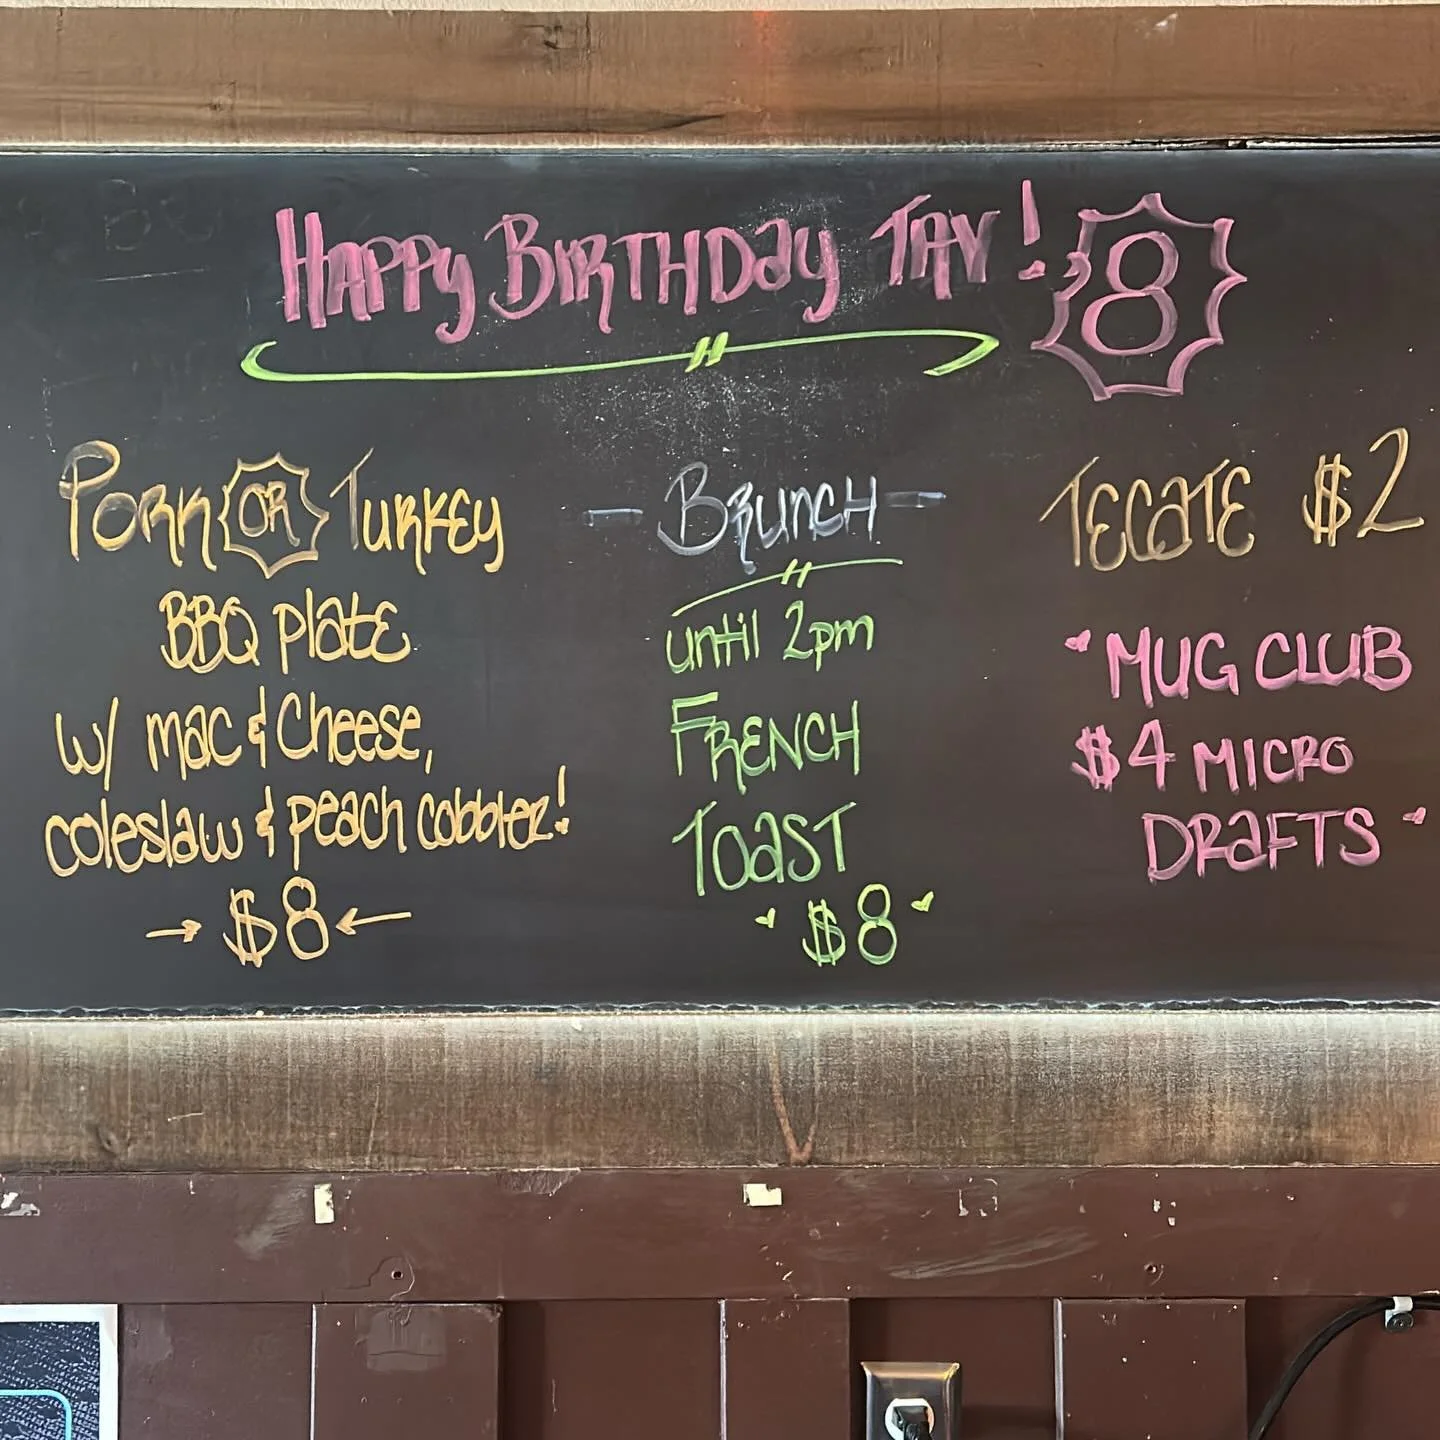 HAPPY BIRTHDAY TAV! 8
PORK OR TURKEY
BBQ plate
w/ mac & Cheese,
coleslaw & peach cobbler!
→ $8 ←
- BRUNCH -
until 2pm
FRENCH
TOAST
$8
TECATE $2
MUG CLUB
$4 MICRO
DRAFTS